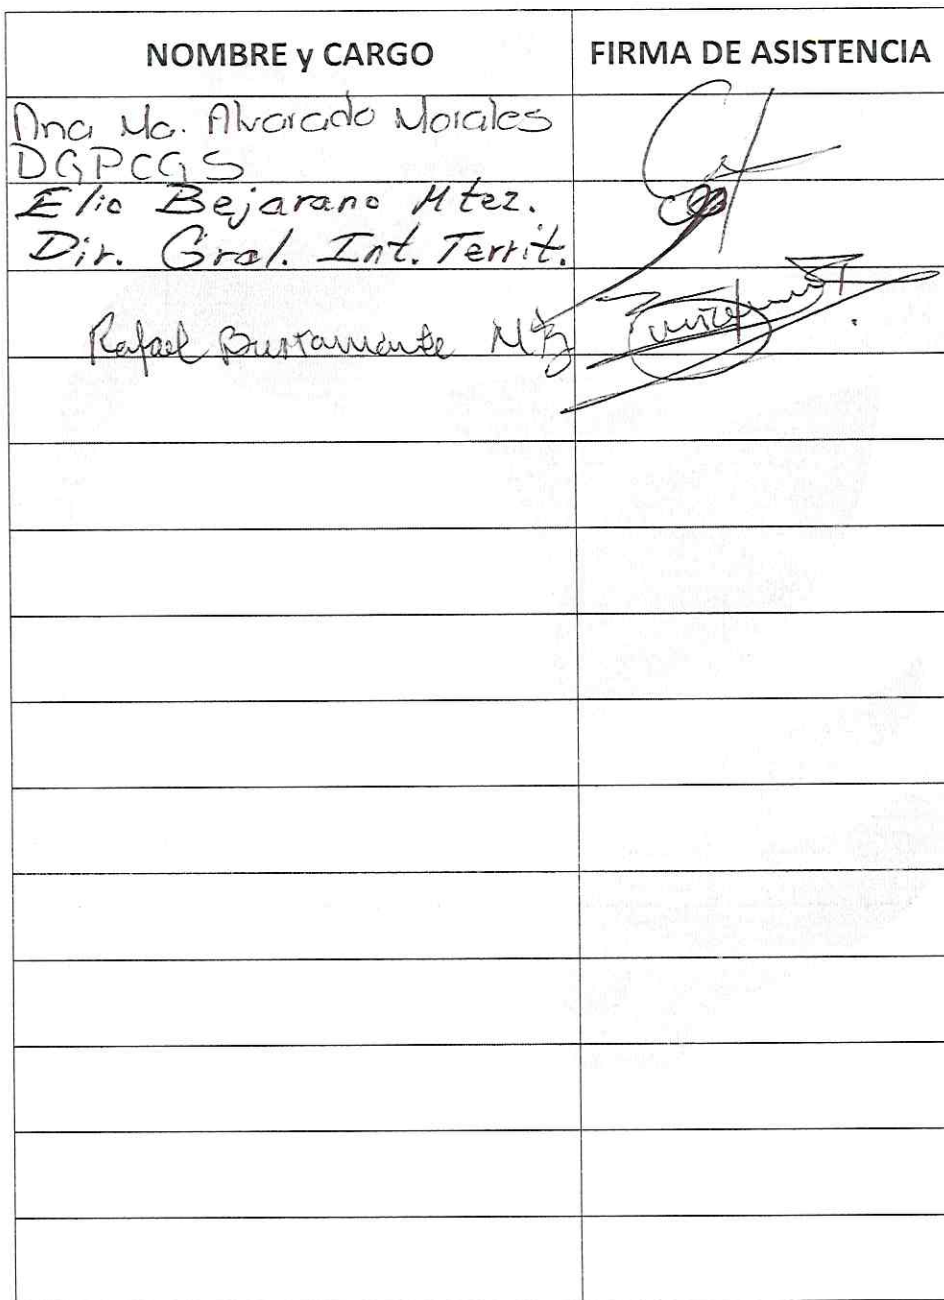 NOMBRE y CARGO
FIRMA DE ASISTENCIA
Ana Ma. Alvarado Morales
DGPCGS
Elio Bejarano Mtez.
Dir. Gral. Int. Territ.
Rafael Bustamante Mtz